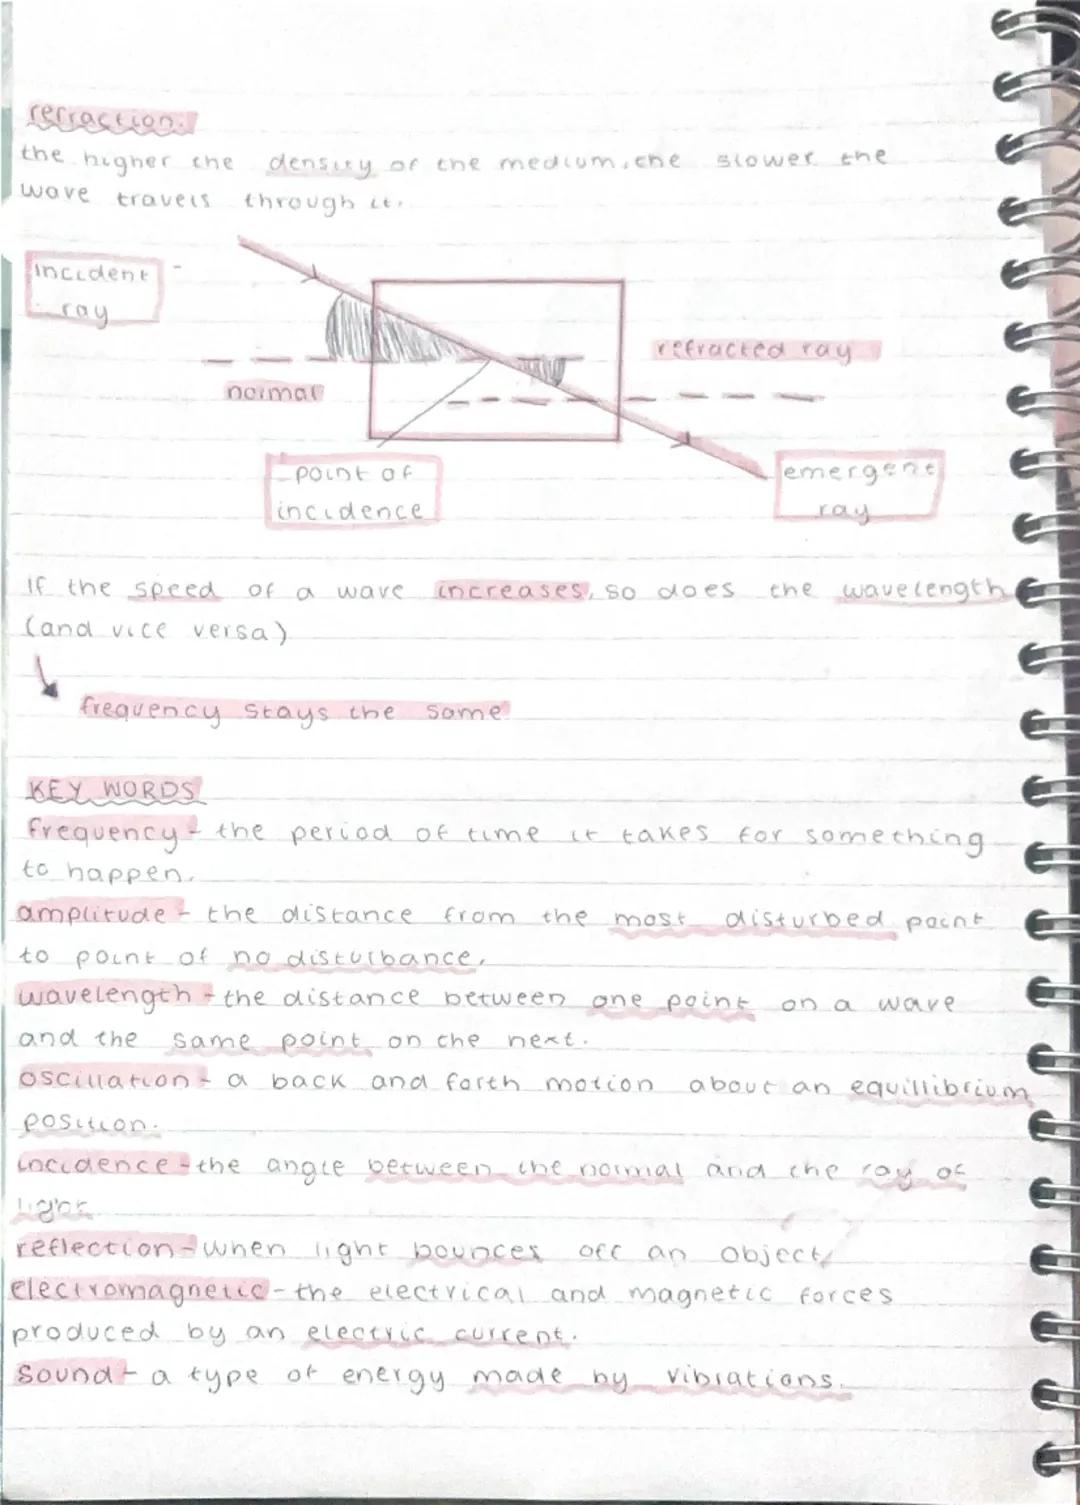 refraction.
the higher the density of the medium, the slower the
wave travels through it.
incident
ray
refracted ray
normal
point of
incidence
emergent
ray
If the speed of a wave increases, so does the wavelength
(and vice versa)
frequency stays the same
KEY WORDS
frequency - the period of time it takes for something
to happen.
amplitude - the distance from the most disturbed point
to point of no disturbance.
wavelength - the distance between one point on a wave
and the same point on the next.
oscillation - a back and forth motion about an equillibrium
position.
incidence - the angle between the normal and the ray of
light.
reflection - when light bounces off an object
electromagnetic - the electrical and magnetic forces
produced by an electric current.
Sound - a type of energy made by vibrations.